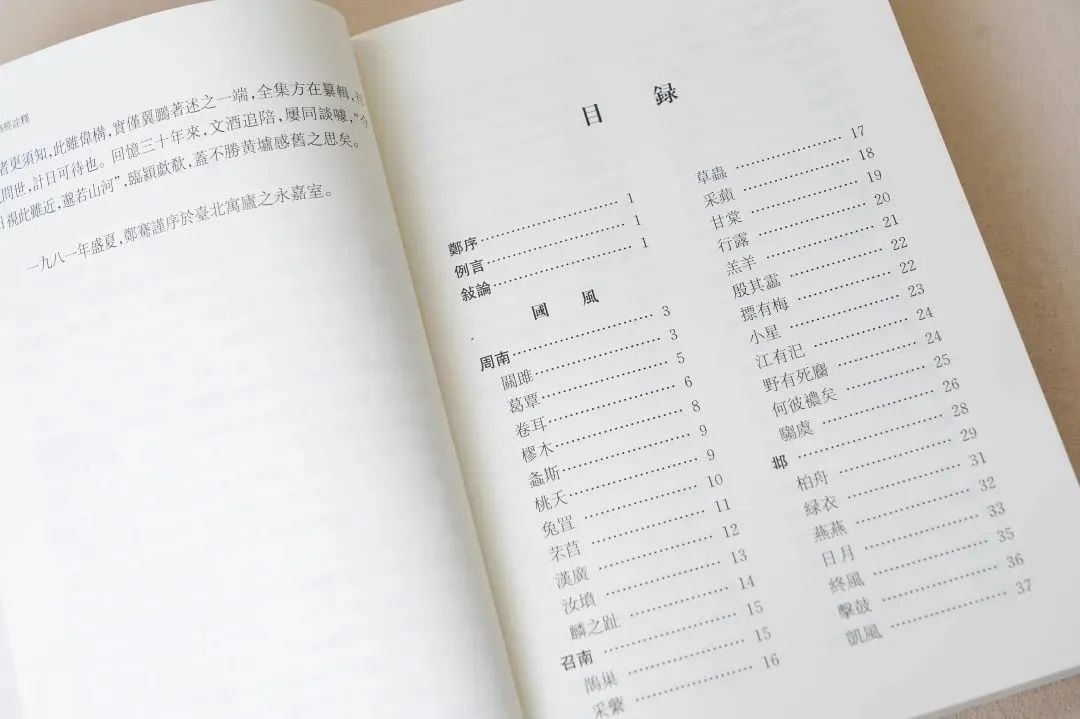 經詮釋
者更須知，此雖偉構，實僅翼鵬著述之一端，全集方在纂輯，
問世，計日可待也。回憶三十年來，文酒追陪，屢同談噱，“今
日視此雖近，邈若山河”，臨穎歔欷，蓋不勝黃壚感舊之思矣。
一九八一年盛夏，鄭騫謹序於臺北寓廬之永嘉室。
目 録
鄭序 1
例言 1
敍論 1
國 風
周南 3
關雎 3
葛覃 5
卷耳 6
樛木 8
螽斯 9
桃夭 9
兔罝 10
芣苢 11
漢廣 12
汝墳 13
麟之趾 14
召南 15
鵲巢 15
采蘩 16
草蟲 17
采蘋 18
甘棠 19
行露 20
羔羊 21
殷其靁 22
摽有梅 22
小星 23
江有汜 24
野有死麕 24
何彼襛矣 25
騶虞 26
邶 28
柏舟 29
緑衣 31
燕燕 32
日月 33
終風 35
擊鼓 36
凱風 37